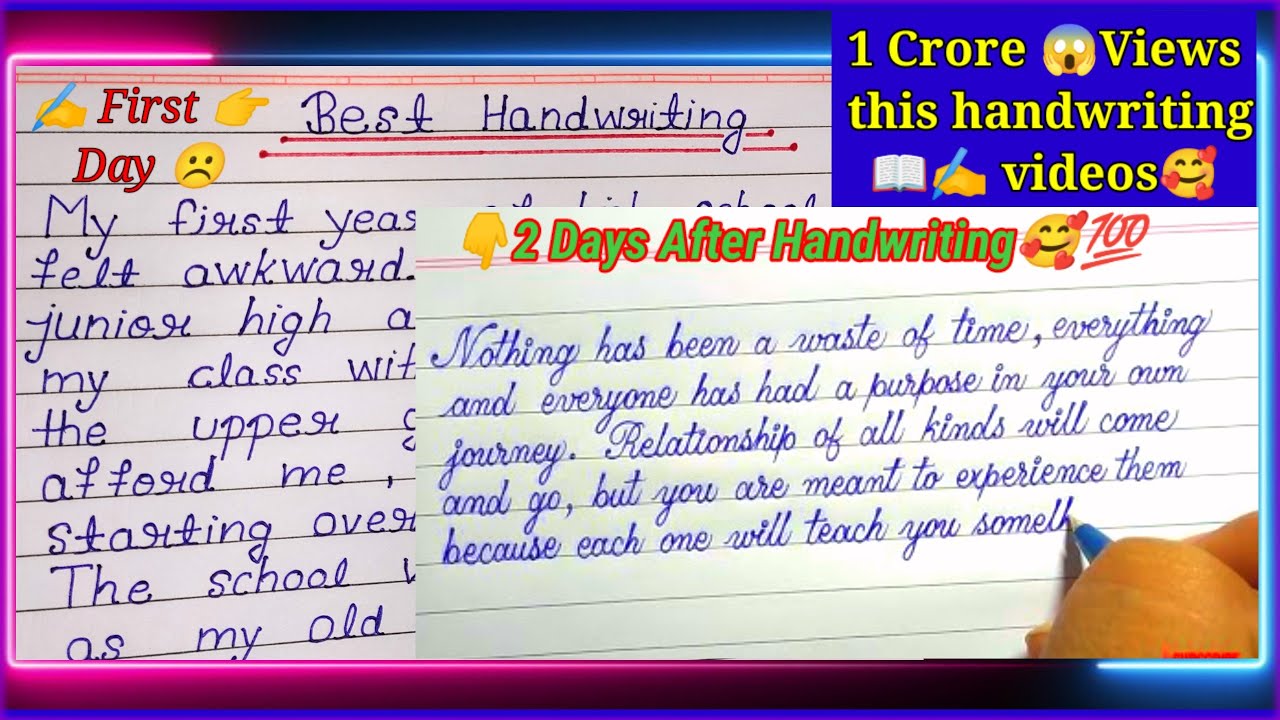 1 Crore 😱Views
this handwriting
📖✍️ videos🥰
✍️ First 👉
Day ☹️
Best Handwriting
My first year
felt awkward.
junior high a
my class wit
the upper g
afford me,
starting over
The school
as my old
👇2 Days After Handwriting🥰💯
Nothing has been a waste of time, everything
and everyone has had a purpose in your own
journey. Relationship of all kinds will come
and go, but you are meant to experience them
because each one will teach you someth